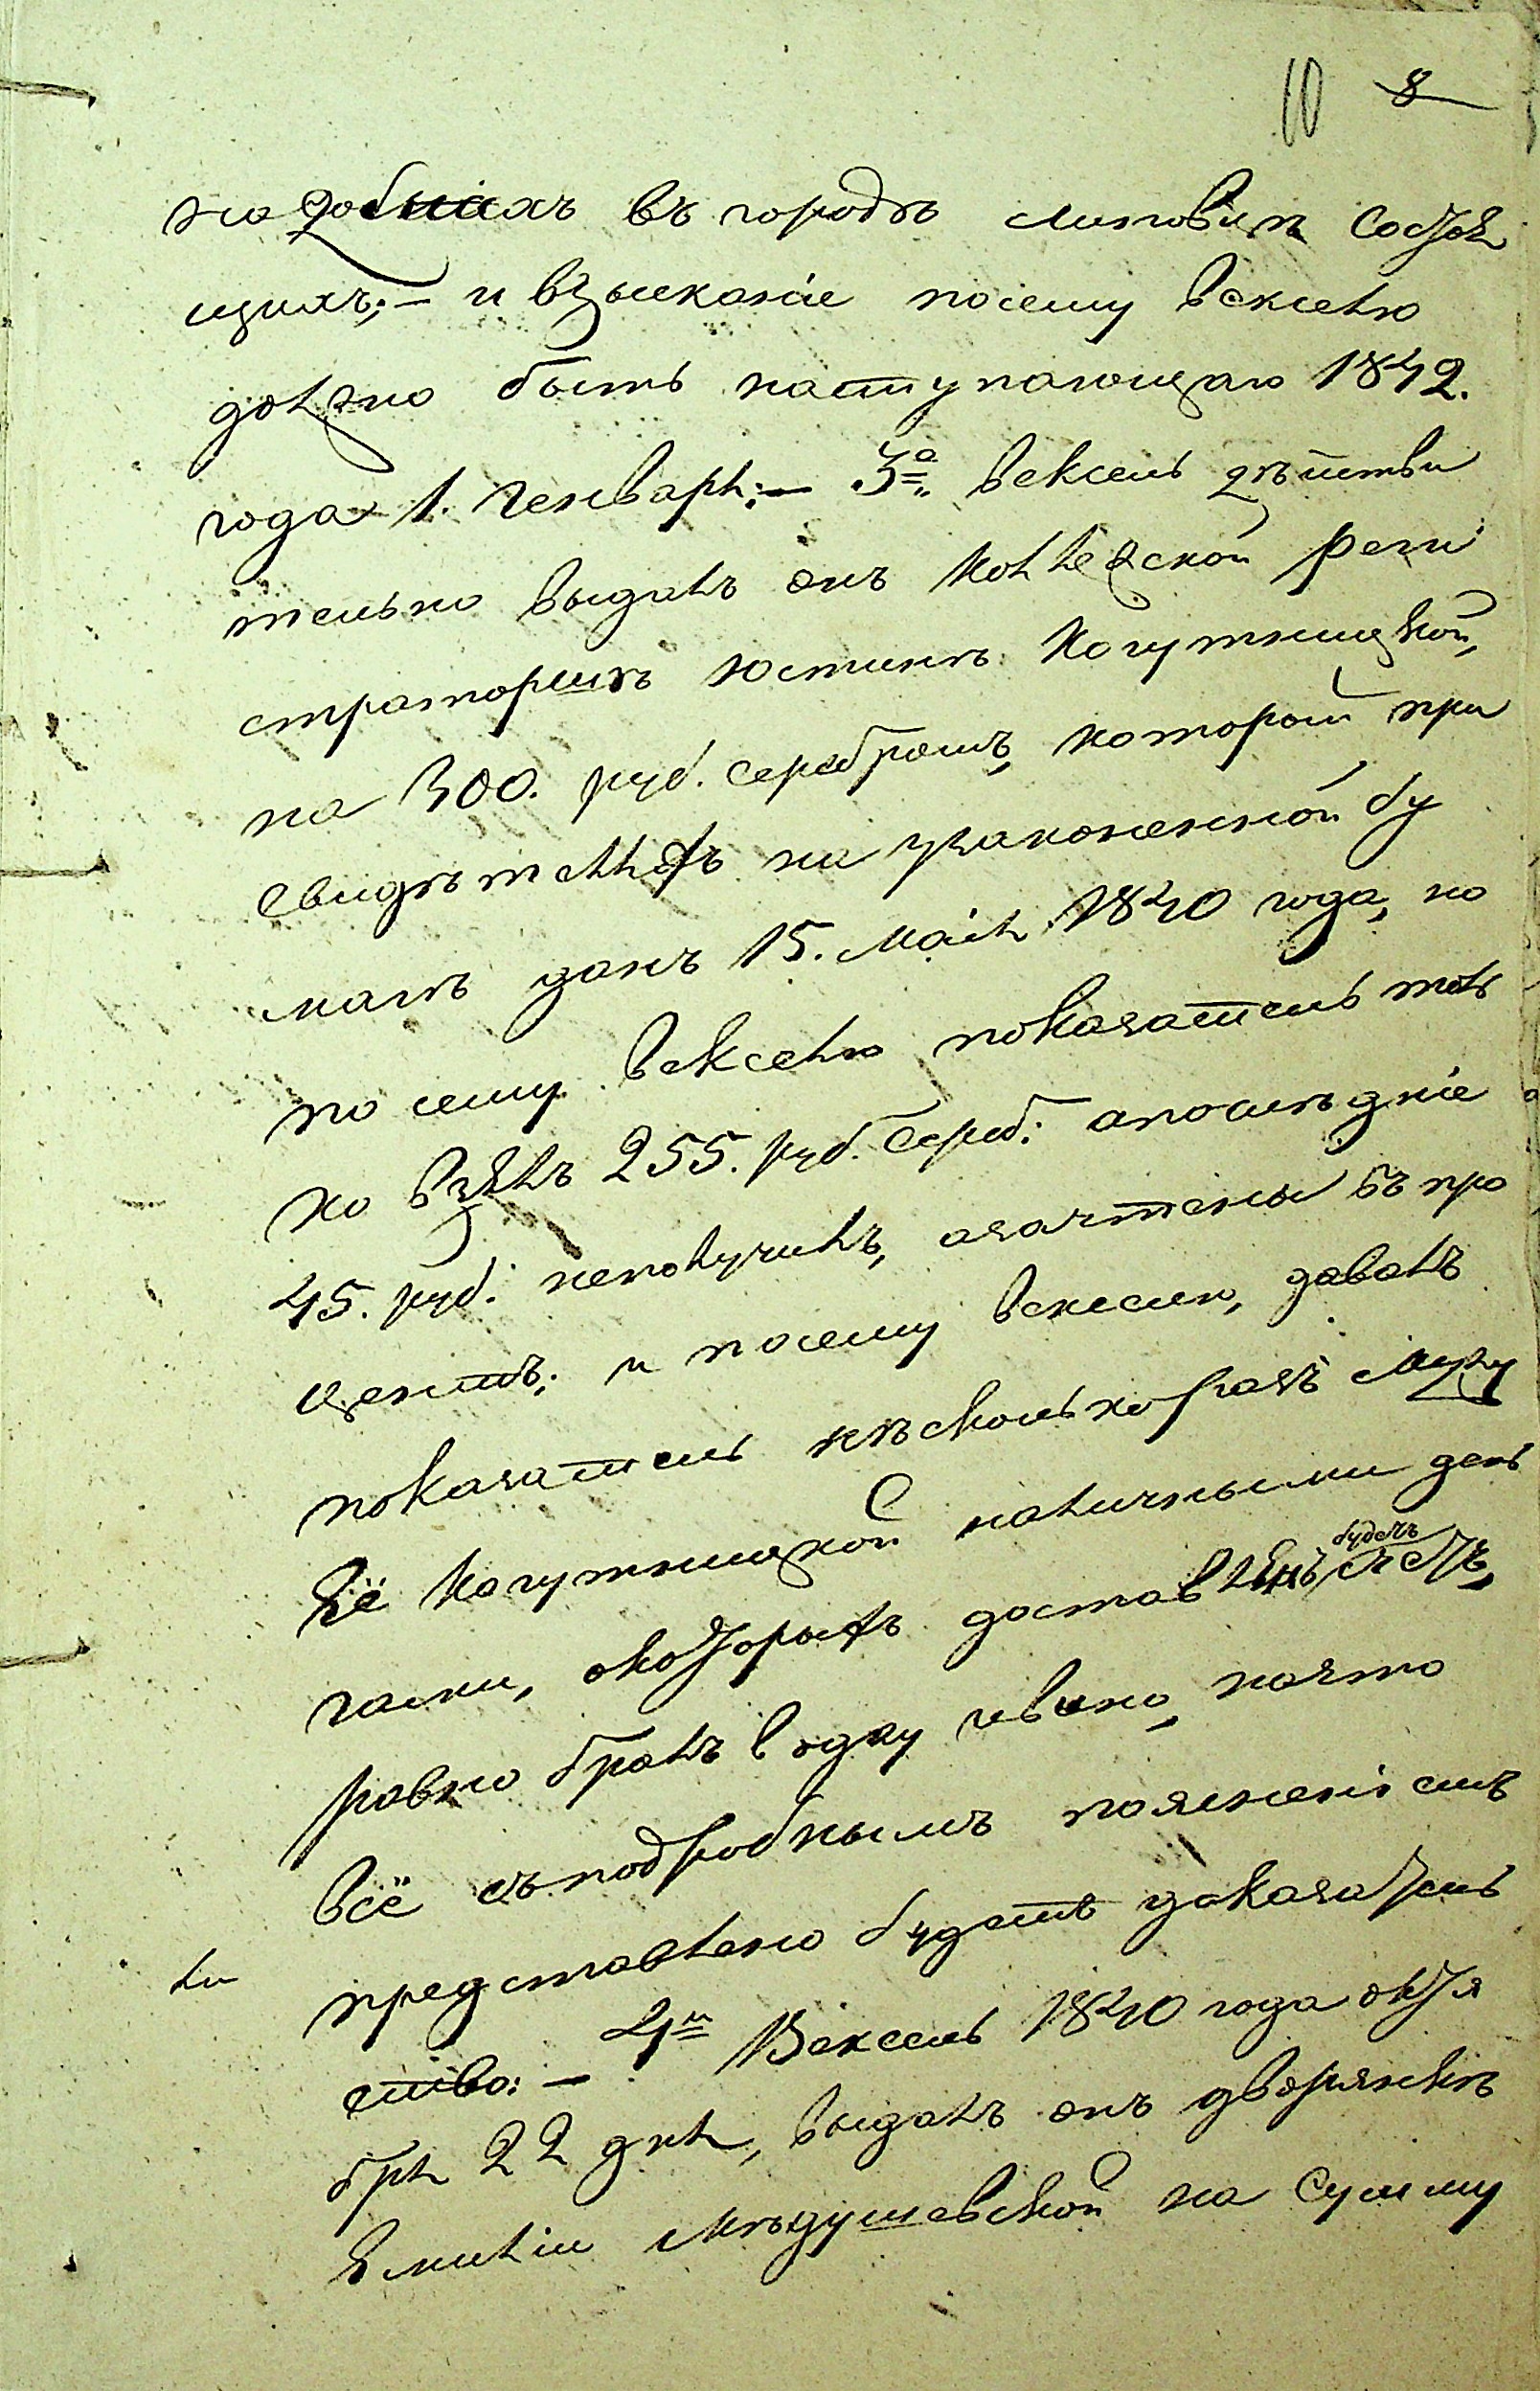 10 8
на добытахъ въ городѣ Литовцѣ состоя
щихъ; – и взысканіе посему векселю
должно быть наступающаго 1842.
года 1. Генваря; – 3а. вексель дѣйстви
тельно выдалъ онъ Коллежской реги
страторшѣ Юстинѣ Когутницкой,
на 300. руб. серебромъ, которой при
свидѣтеляхъ на узаконенной бу
магѣ данъ 15. Маія 1840 года, но
по сему векселю показатель толь
ко взялъ 255. руб. Сереб: а послѣдніе
45. руб: неполучилъ, а зачтены въ про
центъ; и посему векселю, давалъ
показатель нѣсколько разъ мужу
Её Когутницкой наличными день
гами, о которыхъ доставленъ будетъ щетъ,
равно бралъ водку и вино, на что
всё съ подробнымъ поясненіемъ
представлено будетъ доказатель
ли
ство: – 4й Вексель 1840 года октя
бря 22 дня, выдалъ онъ дворянкѣ
Эмиліи Мѣдушевской на сумму